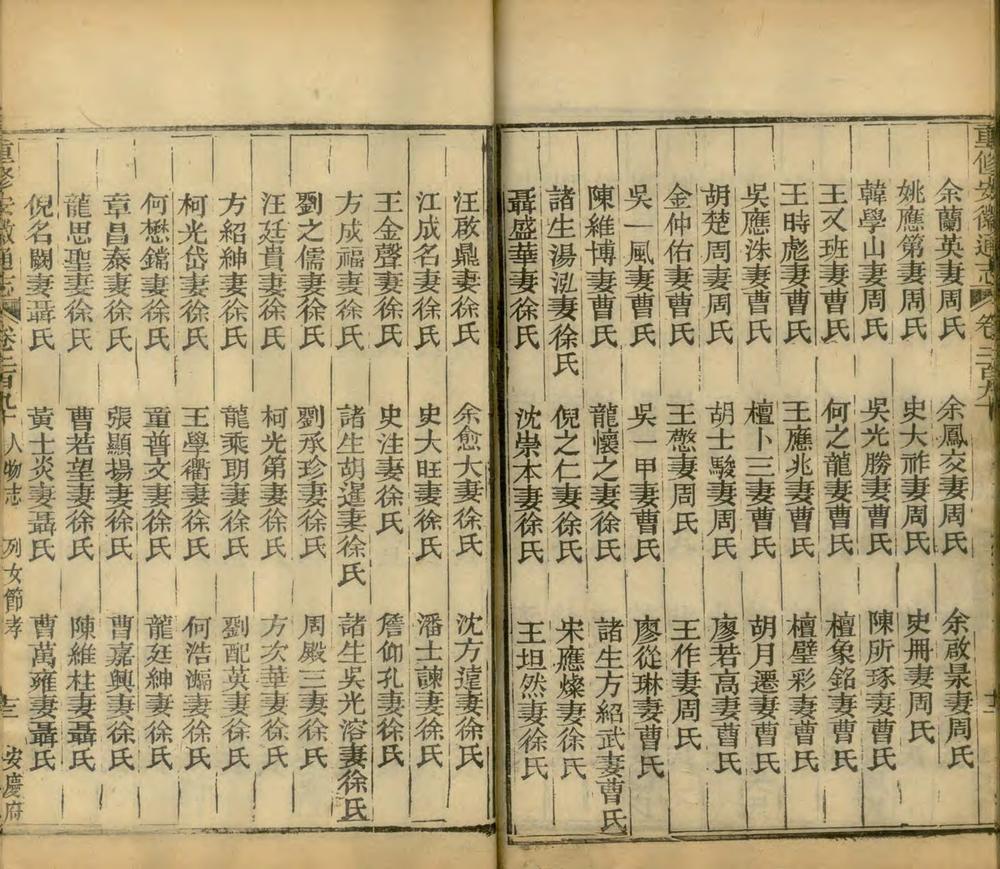 重修安徽通志 卷二百九十
余蘭英妻周氏 余鳳交妻周氏 余啟景妻周氏
姚應第妻周氏 史大祚妻周氏 史冊妻周氏
韓學山妻周氏 吳光勝妻曹氏 陳所琢妻曹氏
王又班妻曹氏 何之龍妻曹氏 檀象銘妻曹氏
王時彪妻曹氏 王應兆妻曹氏 檀璧彩妻曹氏
吳應洙妻曹氏 檀卜三妻曹氏 胡月遷妻曹氏
胡楚周妻周氏 胡士駿妻周氏 廖若高妻曹氏
金仲佑妻曹氏 王憗妻周氏 王作妻周氏
吳一風妻曹氏 吳一甲妻曹氏 廖從琳妻曹氏
陳維博妻曹氏 龍懷之妻徐氏 諸生方紹武妻曹氏
諸生湯泓妻徐氏 倪之仁妻徐氏 宋應燦妻徐氏
聶盛華妻徐氏 沈崇本妻徐氏 王坦然妻徐氏
汪啟鼎妻徐氏 余愈大妻徐氏 沈方蓮妻徐氏
江成名妻徐氏 史大旺妻徐氏 潘士諫妻徐氏
王金聲妻徐氏 史注妻徐氏 詹仰孔妻徐氏
方成福妻徐氏 諸生胡暹妻徐氏 諸生吳光溶妻徐氏
劉之儒妻徐氏 劉承珍妻徐氏 周殿三妻徐氏
汪廷貴妻徐氏 柯光第妻徐氏 方次華妻徐氏
方紹紳妻徐氏 龍乘明妻徐氏 劉配英妻徐氏
柯光岱妻徐氏 王學衢妻徐氏 何浩妻徐氏
何懋鐺妻徐氏 童普文妻徐氏 龍廷紳妻徐氏
章昌泰妻徐氏 張顯揚妻徐氏 曹嘉興妻徐氏
龍思聖妻徐氏 曹若望妻徐氏 陳維柱妻聶氏
倪名闕妻聶氏 黃士炎妻聶氏 曹萬雍妻聶氏
重修安徽通志 卷二百九十 人物志 列女節孝 十三 安慶府